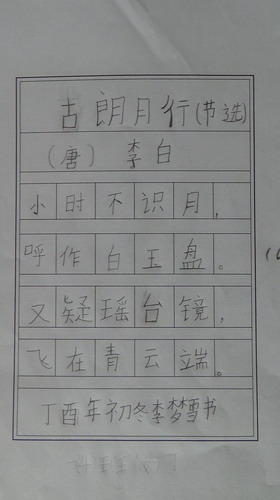 古朗月行(节选)
(唐) 李白
小时不识月,
呼作白玉盘。
又疑瑶台镜,
飞在青云端。
丁酉年初冬李梦雪书